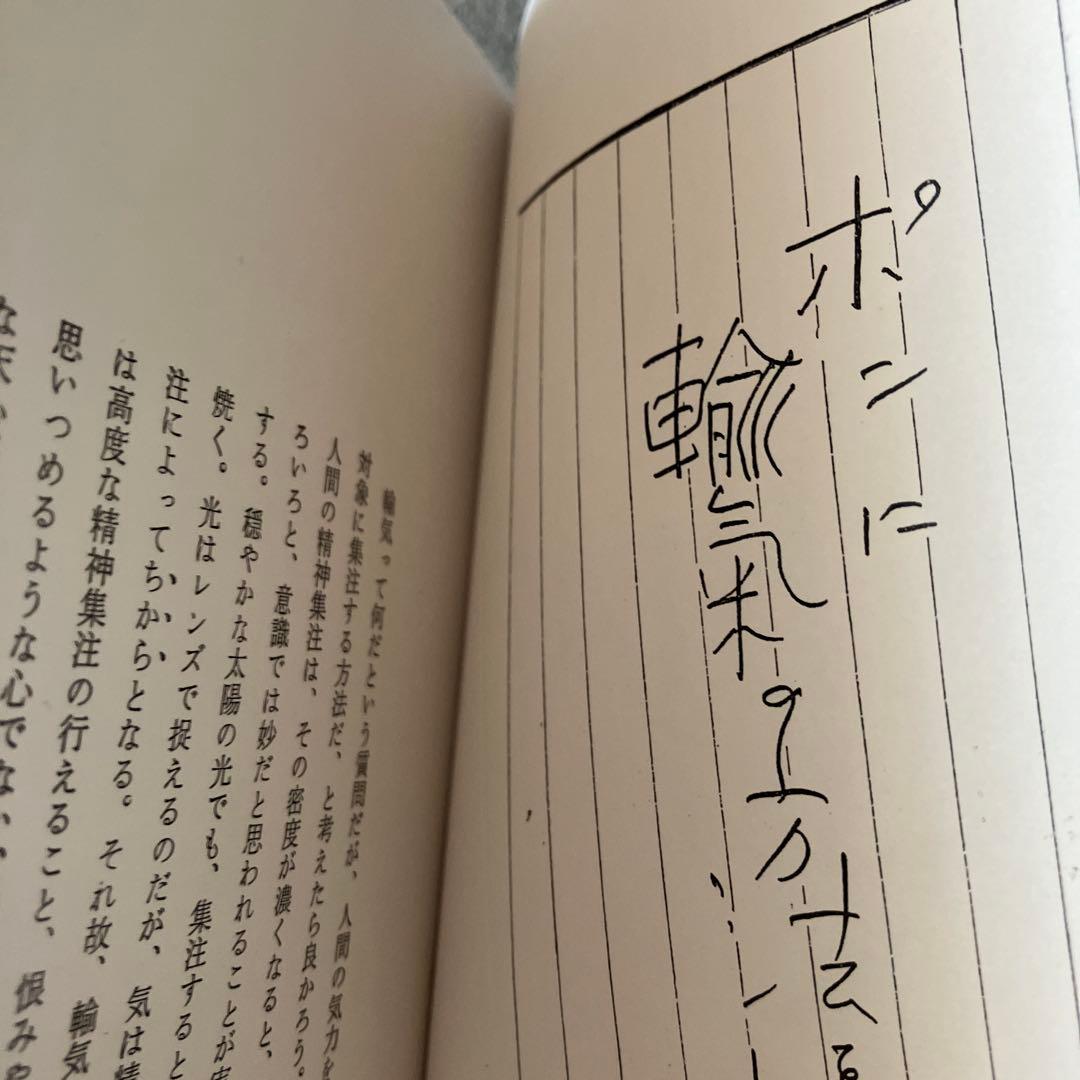 ポンに
輸氣の
輸気って何だという質問だが、人間の気力を
対象に集注する方法だ、と考えたら良かろう。
人間の精神集注は、その密度が濃くなると、
ろいろと、意識では妙だと思われることが実
する。穏やかな太陽の光でも、集注すると
焼く。光はレンズで捉えるのだが、気は精
注によってちからとなる。それ故、輸気
は高度な精神集注の行えること、恨みや
思いつめるような心でな
な天